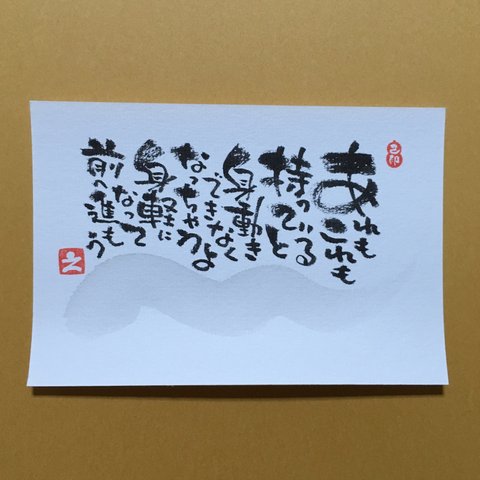 あれもこれも
持っていると
身動き
できなく
なっちゃうよ
身軽に
なって
前へ進もう